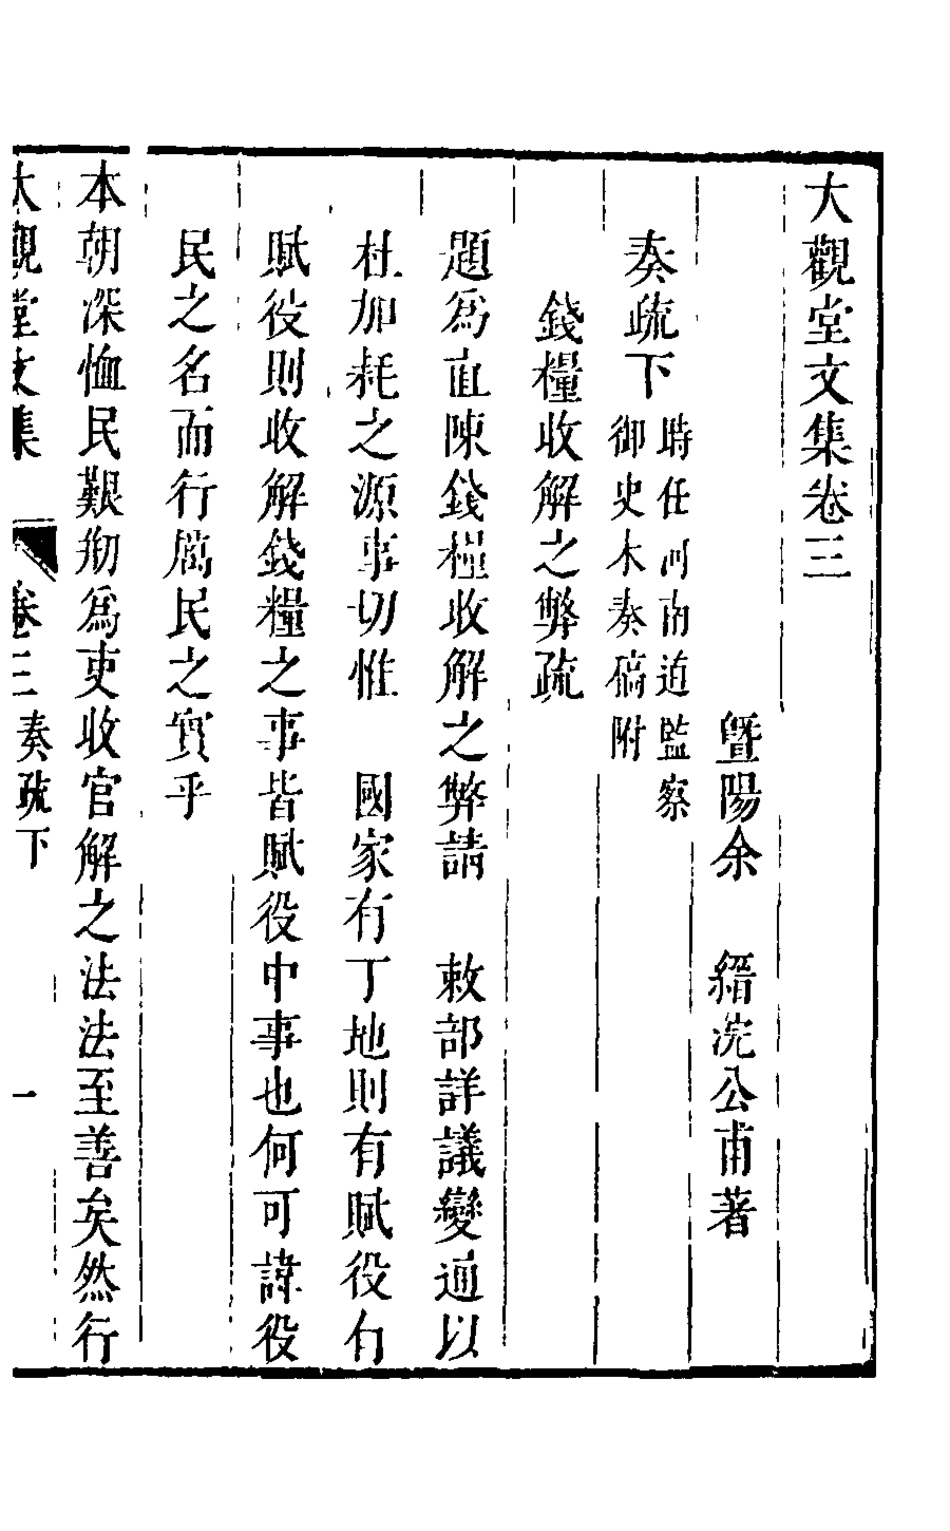 大觀堂文集卷三
暨陽余　縉浣公甫著
奏疏下
時任河南道監察
御史木奏稿附
錢糧收解之弊疏
題爲直陳錢糧收解之弊請　敕部詳議變通以
杜加耗之源事切惟　國家有丁地則有賦役有
賦役則收解錢糧之事皆賦役中事也何可諱役
民之名而行厲民之實乎
本朝深恤民艱剏爲吏收官解之法法至善矣然行
大觀堂文集　卷三 奏疏下　一